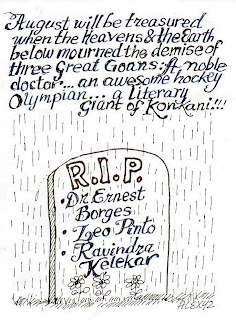 August will be treasured
when the heavens & the Earth
below mourned the demise of
three Great Goans: A noble
doctor... an awesome hockey
Olympian... a literary
giant of Konkani!!!
R.I.P.
• Dr Ernest
Borges
• Leo Pinto
• Ravindra
Kelekar
ALEXYZ